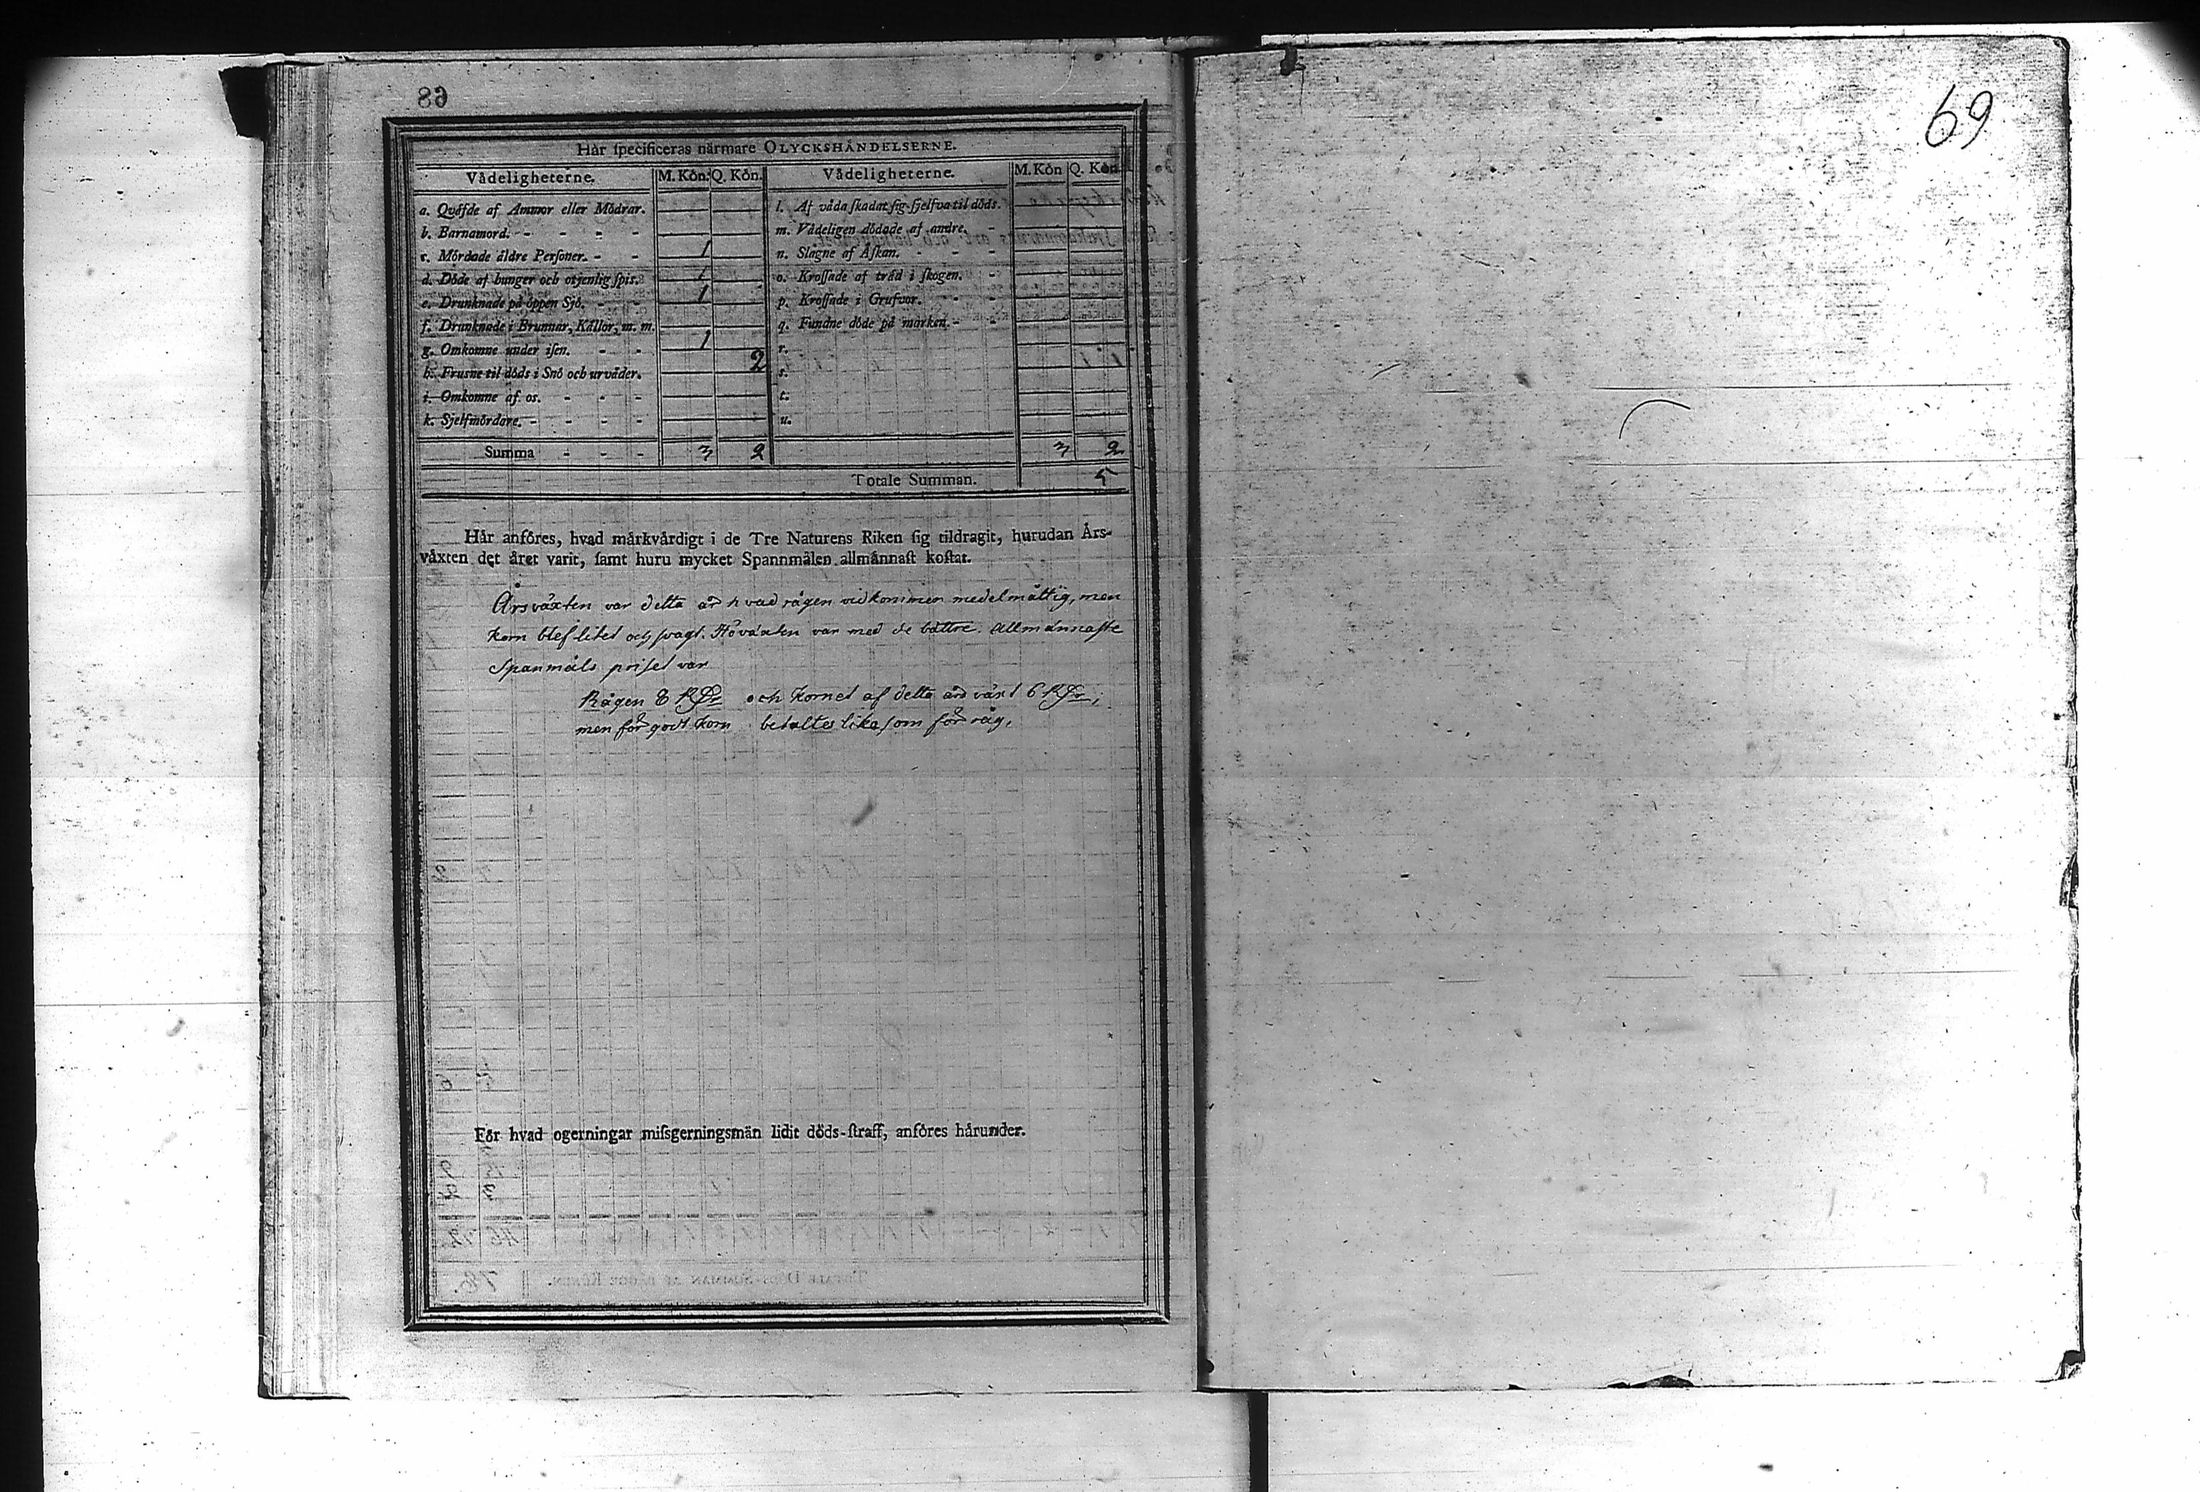 89
69
Hår ſpecificeras närmare OLYCKSHÅNDELSERNE.
Vådeligheterne. M. Kön. Q. Kön. Vådeligheterne. M. Kön Q. Kön
a. Qväfde af Ammor eller Mödrar. l. Af våda ſkadat ſig ſjelfva til döds.
b. Barnamord. - - - - m. Vådeligen dödade af andre. -
c. Mördade äldre Perſoner. - - 1 n. Slagne af Åſkan. - - -
d. Döde af hunger och otjenlig ſpis. 1 o. Kroſſade af träd i ſkogen. -
e. Drunknade på öppen Sjö. - - 1 p. Kroſſade i Grufvor. - -
f. Drunknade i Brunnar, Källor, m. m. q. Fundne döde på marken. - -
g. Omkomne under iſen. - - 1 r.
h. Frusne til döds i Snö och urväder. 2 s.
i. Omkomne af os. - - - t.
k. Sjelfmördare. - - - - u.
Summa - - - 3 2 3 2
Totale Summan. 5
Hår anföres, hvad märkvärdigt i de Tre Naturens Riken ſig tildragit, hurudan Års-
växten det året varit, ſamt huru mycket Spannmålen allmännaſt koſtat.
Årsväxten var detta år hvad rågen vidkommer medelmåttig, men
korn blef litet och ſvagt. Höväxten var med de bättre. Allmännaſte
Spanmåls priſet var
Rågen 8 Rdr och Kornet af detta års växt 6 Rdr;
men för godt korn betaltes lika ſom för råg.
För hvad ogerningar miſsgerningsmän lidit döds-ſtraff, anföres hårunder.